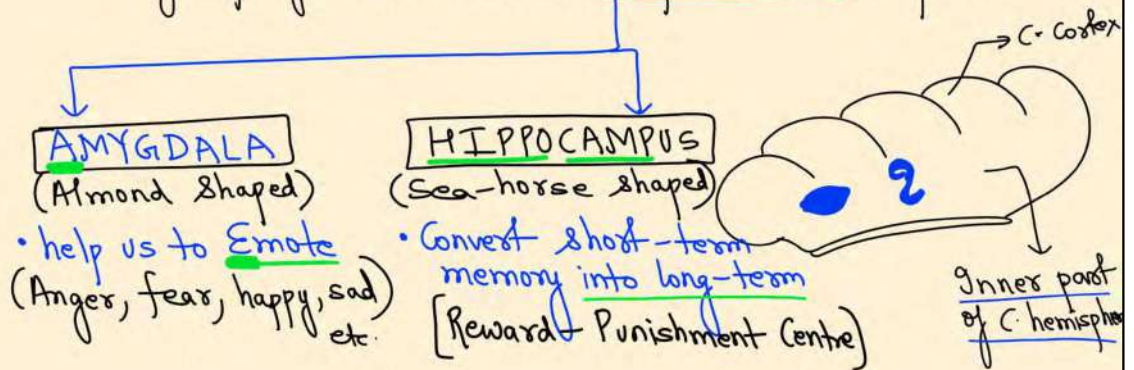 C. Cortex
AMYGDALA
(Almond Shaped)
• help us to Emote
(Anger, fear, happy, sad)
etc.
HIPPOCAMPUS
(Sea-horse shaped)
• Convert short-term
memory into long-term
[Reward - Punishment Centre]
Inner part
of C. hemisphe